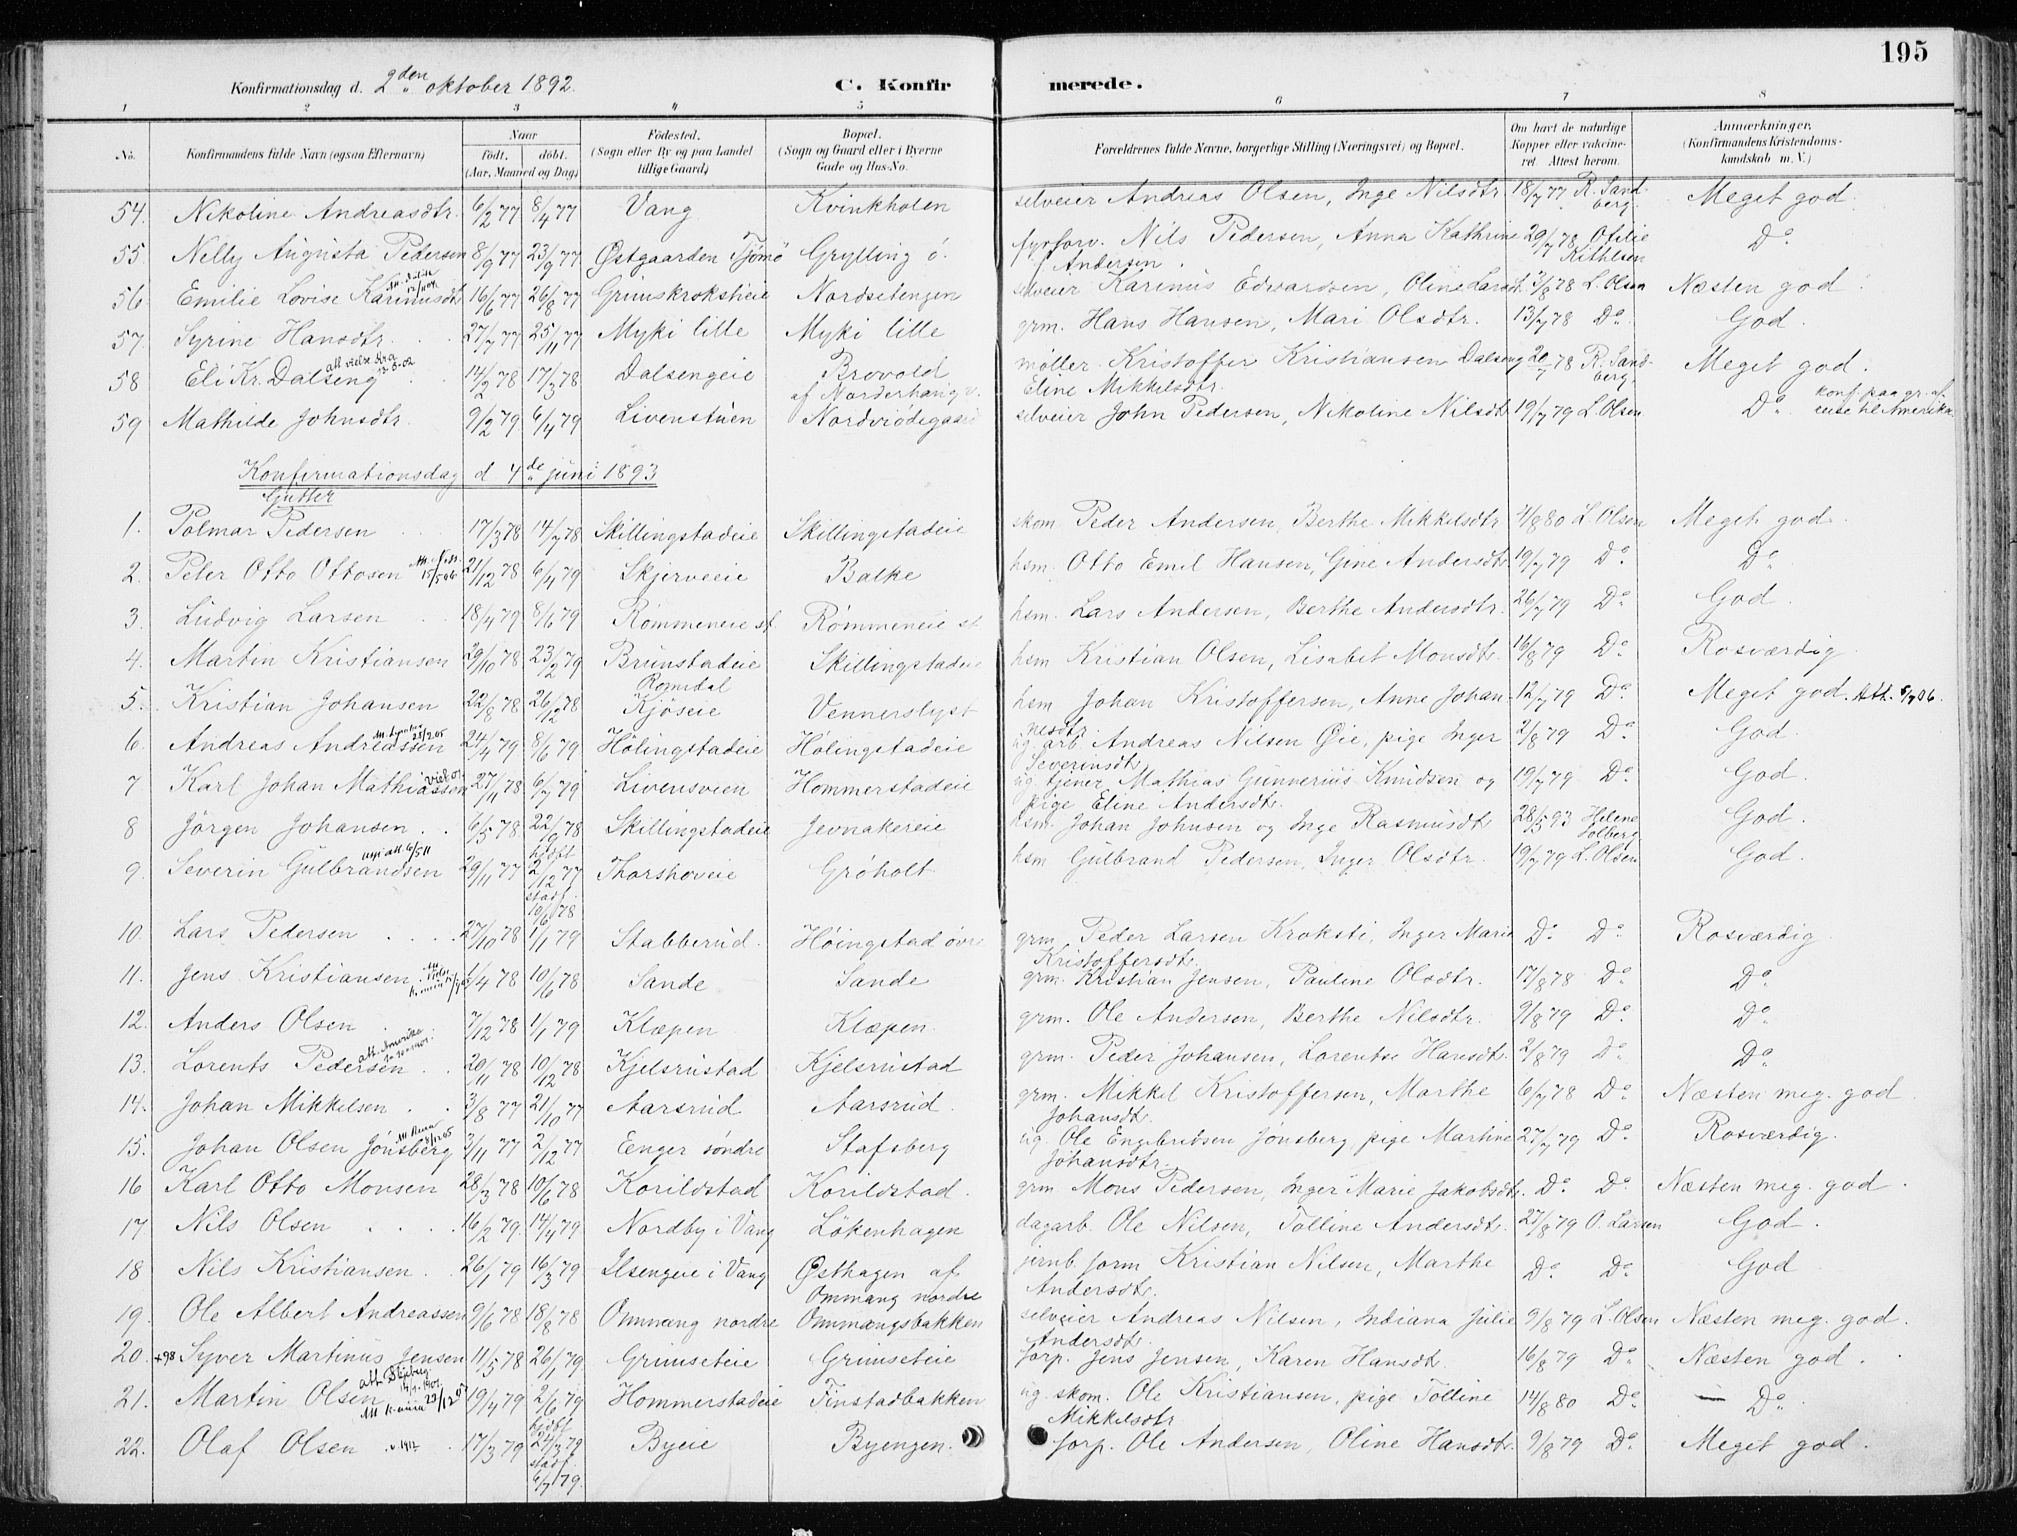 195
Konfirmationsdag d. 2den oktober 1892. C. Konfirmerede.
1 2 3 4 5 6 7 8
No. Konfirmandens fulde Navn (ogsaa Efternavn) Naar født, døbt. (Aar, Maaned og Dag) Fødested. (Sogn eller By og paa Landet tillige Gaard) Bopæl. (Sogn og Gaard eller i Byerne Gade og Hus-No. Forældrenes fulde Navne, borgerlige Stilling (Næringsvei) og Bopæl. Om havt de naturlige Kopper eller vaccineret. Attest herom. Anmærkninger. (Konfirmandens Kristendomskundskab m. V.)
54. Nikoline Andreasdtr. 6/2 77 8/4 77 Vang Kvinkholen selveier Andreas Olsen, Inge Nilsdtr. 18/7 77 R. Sandberg. Meget god.
55. Nelly Augusta Pedersen 8/9 77 23/9 77 Østgaarden Tjömö Grylling ö. fyrforv. Nils Pedersen, Anna Kathrine f. Andersen. 20/7 78 Otilie Do
56. Emilie Lovise Karinusdtr 16/6 77 26/8 77 Grimskrokstieie Nordsetengen selveier Karinus Edvardsen, Oline Larsdt. 3/8 78 L. Olsen Næsten god.
57. Syrine Hansdtr. 27/7 77 25/11 77 Myki lille Myki lille grm. Hans Hansen, Mari Olsdtr. 13/7 78 Do God.
58 Eli Kr. Dalseng 14/2 78 17/3 78 Dalsengeie Brovold af Norderhang møller Kristoffer Kristiansen Dalseng Eline Mikkelsdtr. 20/7 78 R. Sandberg. Meget god.
59 Mathilde Johnsdtr. 9/2 79 6/4 79 Livenstuen selveier John Pedersen, Nikoline Nilsdtr 19/7 79 L. Olsen Do konf. paa gr. af reise til Amerika
Konfirmationsdag d 4de juni 1893
Gutter
1. Polmar Pedersen 17/3 78 14/7 78 Skillingstadeie Skillingstadeie skom. Peder Andersen, Berthe Mikkelsdtr 4/8 80 L. Olsen Meget god.
2. Peter Otto Ottosen 21/12 78 6/4 79 Skjerveeie Balke hsm. Otto Emil Hansen, Gine Andersdtr 19/7 79 Do Do
3. Ludvig Larsen 18/4 79 8/6 79 Rømmeneie st. Rømmeneie st hsm. Lars Andersen, Berthe Andersdtr. 26/7 79 Do God
4. Martin Kristiansen 29/10 78 23/2 79 Brunstadeie Skillingstadeie hsm Kristian Olsen, Lisabet Monsdtr. 16/8 79 Do Rosværdig
5. Kristian Johansen 22/8 78 26/12 78 Romedal Kjöseie Vennerslyst hsm Johan Kristoffersen, Anne Johannesdtr. 12/7 79 Do Meget god. Att. 5/7 06.
6. Andreas Andreassen 24/4 79 8/6 79 Hølingstadeie Hølingstadeie ug. arb. Andreas Nilsen Øie, pige Inger Severinsdtr. 2/8 79 Do God.
7 Karl Johan Mathiassen 27/11 78 6/7 79 Livensveen Hommerstadeie ug. tjener Mathias Gunnerius Knudsen og pige Eline Andersdtr. 19/7 79 Do God.
8 Jørgen Johansen 6/5 78 22/9 78 Skillingstadeie Jevnakereie hsm. Johan Johnsen og Inge Rasmusdtr 28/5 93 Helene Solberg God.
9. Severin Gulbrandsen 29/11 77 hjdøbt 2/12 77 stadf. 10/6 78 Thorshoveie Grøholt hsm Gulbrand Pedersen, Inger Olsdtr. 19/7 79 L. Olsen God.
10. Lars Pedersen 27/10 78 1/1 79 Stabberud. Høingstad øvre grm Peder Larsen Kroksti, Inger Marie Kristoffersdtr. Do Do Rosværdig
11. Jens Kristiansen 1/4 78 10/6 78 Sande Sande grm. Kristian Jensen, Pauline Olsdtr. 17/8 78 Do Do
12. Anders Olsen 7/12 78 1/1 79 Klæpen Klæpen grm. Ole Andersen, Berthe Nilsdtr. 9/8 79 Do Do
13. Lorents Pedersen 20/11 78 10/12 78 Kjelsrustad Kjelsrustad grm. Peder Johansen, Lorentse Hansdtr. 2/8 79 Do Do
14. Johan Mikkelsen 3/8 77 21/10 77 Aarsrud Aarsrud. grm. Mikkel Kristoffersen, Marthe Johansdtr. 6/7 78 Do Næsten meg. god.
15. Johan Olsen Jønsberg 3/11 77 2/12 77 Eenger søndre Stafsberg ug. Ole Engebretsen Jønsberg, pige Martine Johansdtr. 27/7 79 Do Rosværdig.
16 Karl Otto Monsen 28/3 78 10/6 78 Korildstad Korildstad. grm Mons Pedersen, Inger Marie Jakobsdtr. Do Do Næsten meg. god.
17 Nils Olsen 16/2 79 14/4 79 Nordby i Vang Løkenhagen dagarb. Ole Nilsen, Tolline Andersdtr. 27/8 79 O. Larsen God.
18 Nils Kristiansen 26/1 79 16/3 79 Ilsengeie i Vang Østhagen af Ommang nordre jernb. form Kristian Nilsen, Marthe Andersdtr. Do Do God
19. Ole Albert Andreassen 9/6 78 18/8 78 Ommang nordre Ommangsbakken selveier Andreas Nilsen, Indiana Julie Andersdtr. 9/8 79 L. Olsen Næsten meg. god.
20. +98 Syver Martinus Jensen 11/5 78 26/1 79 Grimseteie Grimseteie forp. Jens Jensen, Karen Hansdtr. 16/8 79 Do Næsten god.
21. Martin Olsen 19/4 79 2/6 79 Hommerstadeie Finstadbakken ug. skom. Ole Kristiansen, pige Tolline Mikkelsdtr 14/8 80 Do — Do
22. Olaf Olsen 17/3 79 hjdøbt 24/3 79 stadf. 6/7 79. Byeie Byengen. forp. Ole Andersen, Oline Hansdtr. 9/8 79 Do Meget god.